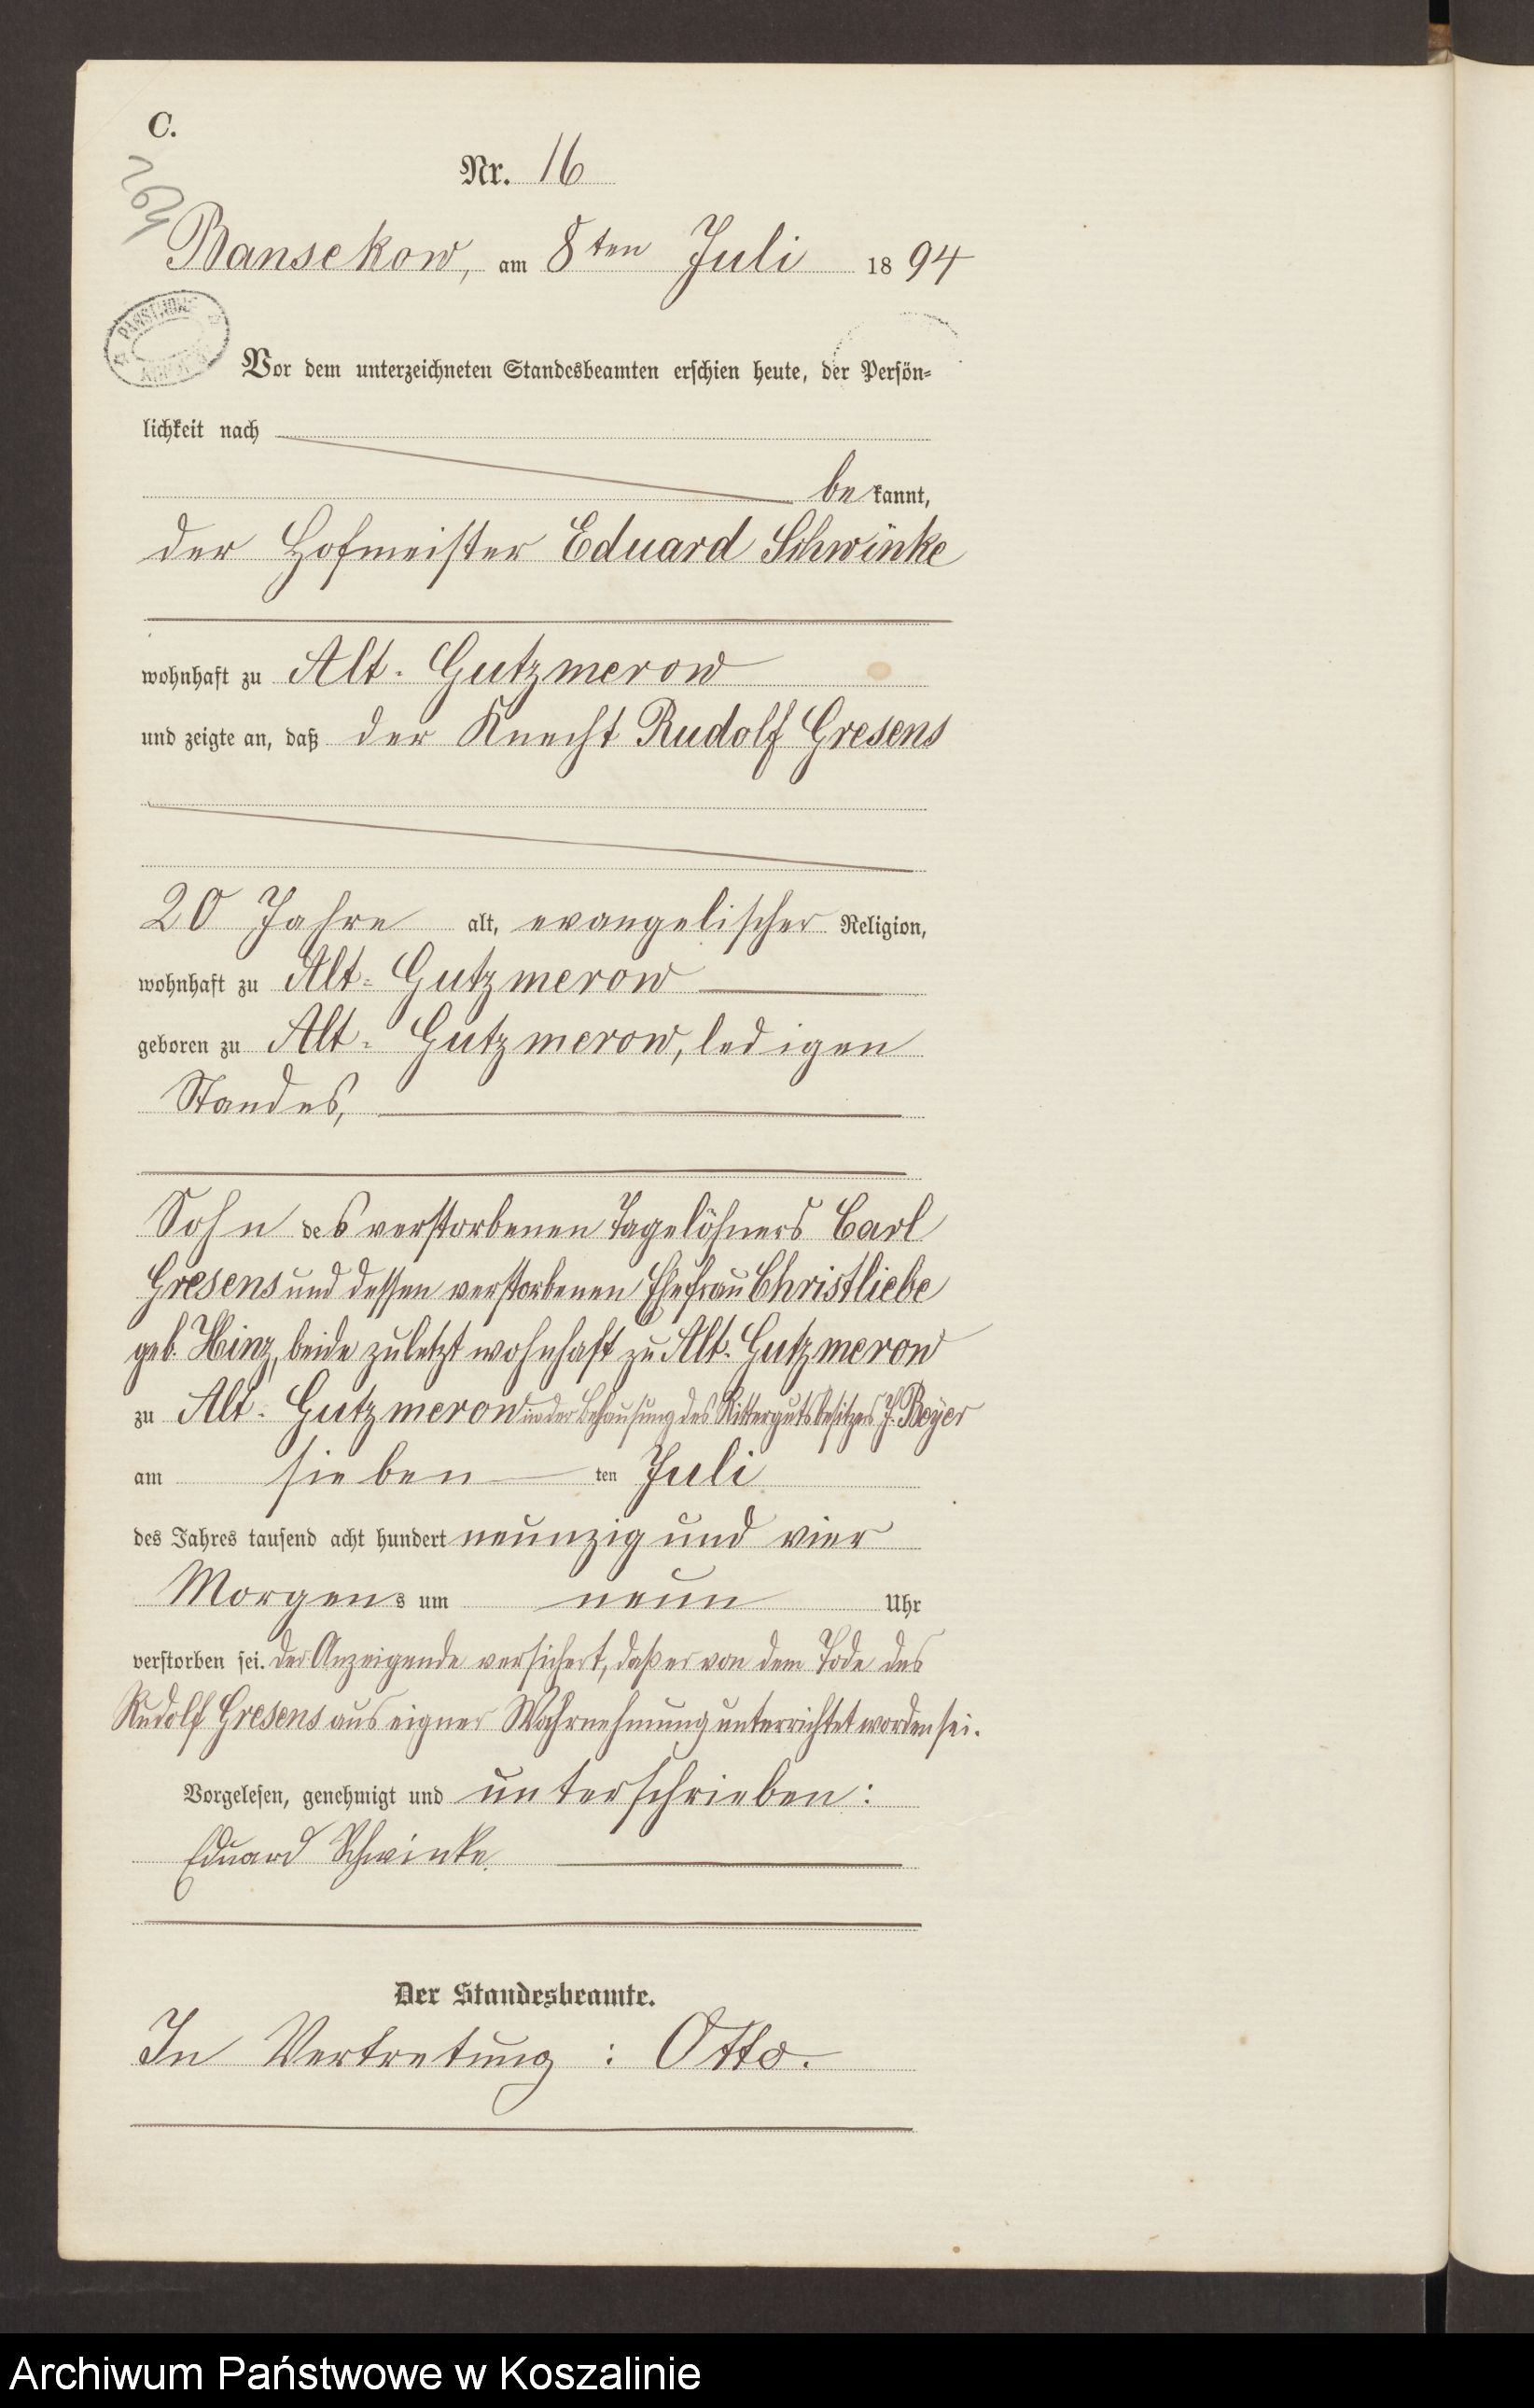 C.
Nr. 16
Bansekow, am 8ten Juli 1894
PAŃSTWOWE
Vor dem unterzeichneten Standesbeamten erschien heute, der Persön-
lichkeit nach
bekannt,
der Hofmeister Eduard Schwinke
wohnhaft zu Alt-Gutzmerow
und zeigte an, daß der Knecht Rudolf Gresens
20 Jahre alt, evangelischer Religion,
wohnhaft zu Alt-Gutzmerow
geboren zu Alt-Gutzmerow, ledigen
Standes,
Sohn des verstorbenen Tagelöhners Carl
Gresens und dessen verstorbenen Ehefrau Christliebe
geb. Hinz, beide zuletzt wohnhaft zu Alt-Gutzmerow
zu Alt-Gutzmerow in der Behausung des Rittergutsbesitzers J. Beyer
am sieben ten Juli
des Jahres tausend acht hundert neunzig und vier
Morgens um neun Uhr
verstorben sei. Der Anzeigende versichert, daß er von dem Tode des
Rudolf Gresens aus eigner Wahrnehmung unterrichtet worden sei.
Vorgelesen, genehmigt und unterschrieben:
Eduard Schwinke
Der Standesbeamte.
In Vertretung: Otto.
Archiwum Państwowe w Koszalinie